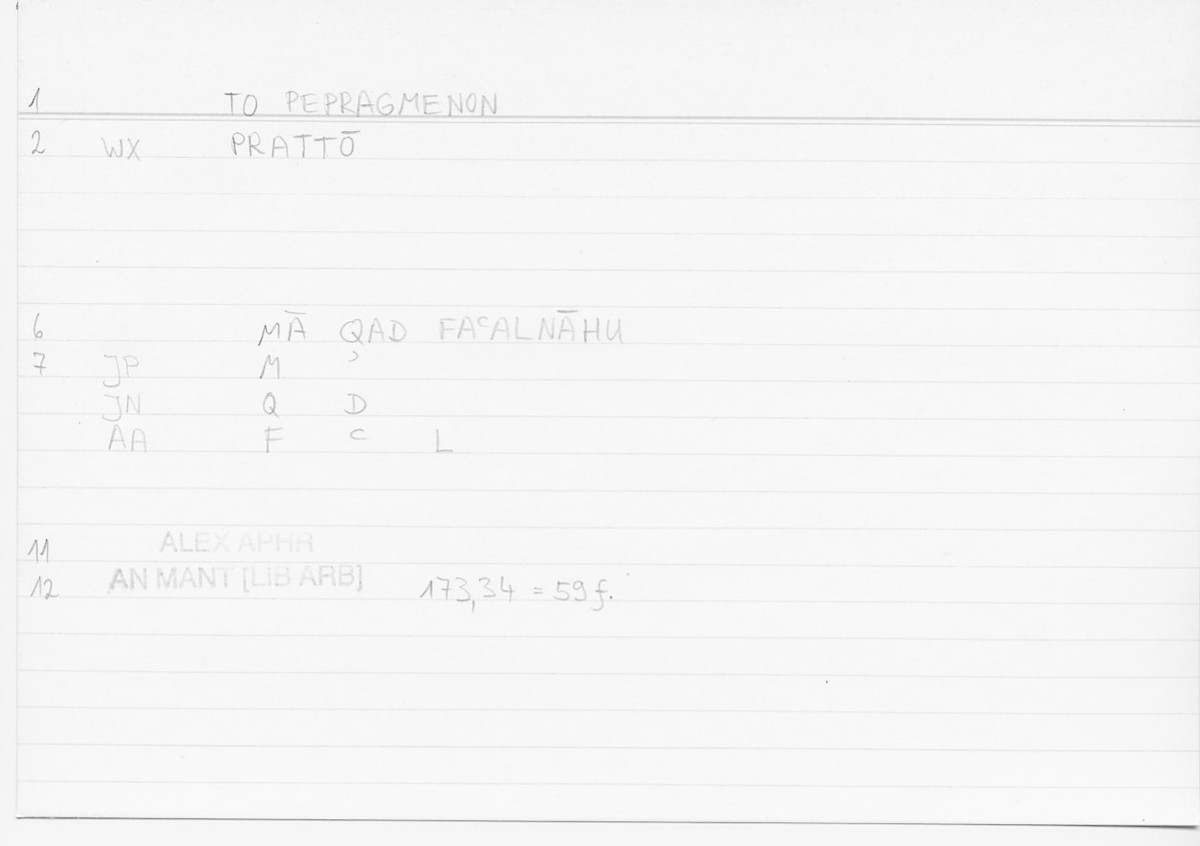 1 TO PEPRAGMENON
2 WX PRATTŌ
6 MĀ QAD FAᶜALNĀHU
7 JP M ʾ
JN Q D
AA F ᶜ L
11 ALEX APHR
12 AN MANT [LIB ARB] 173,34 = 59 f.